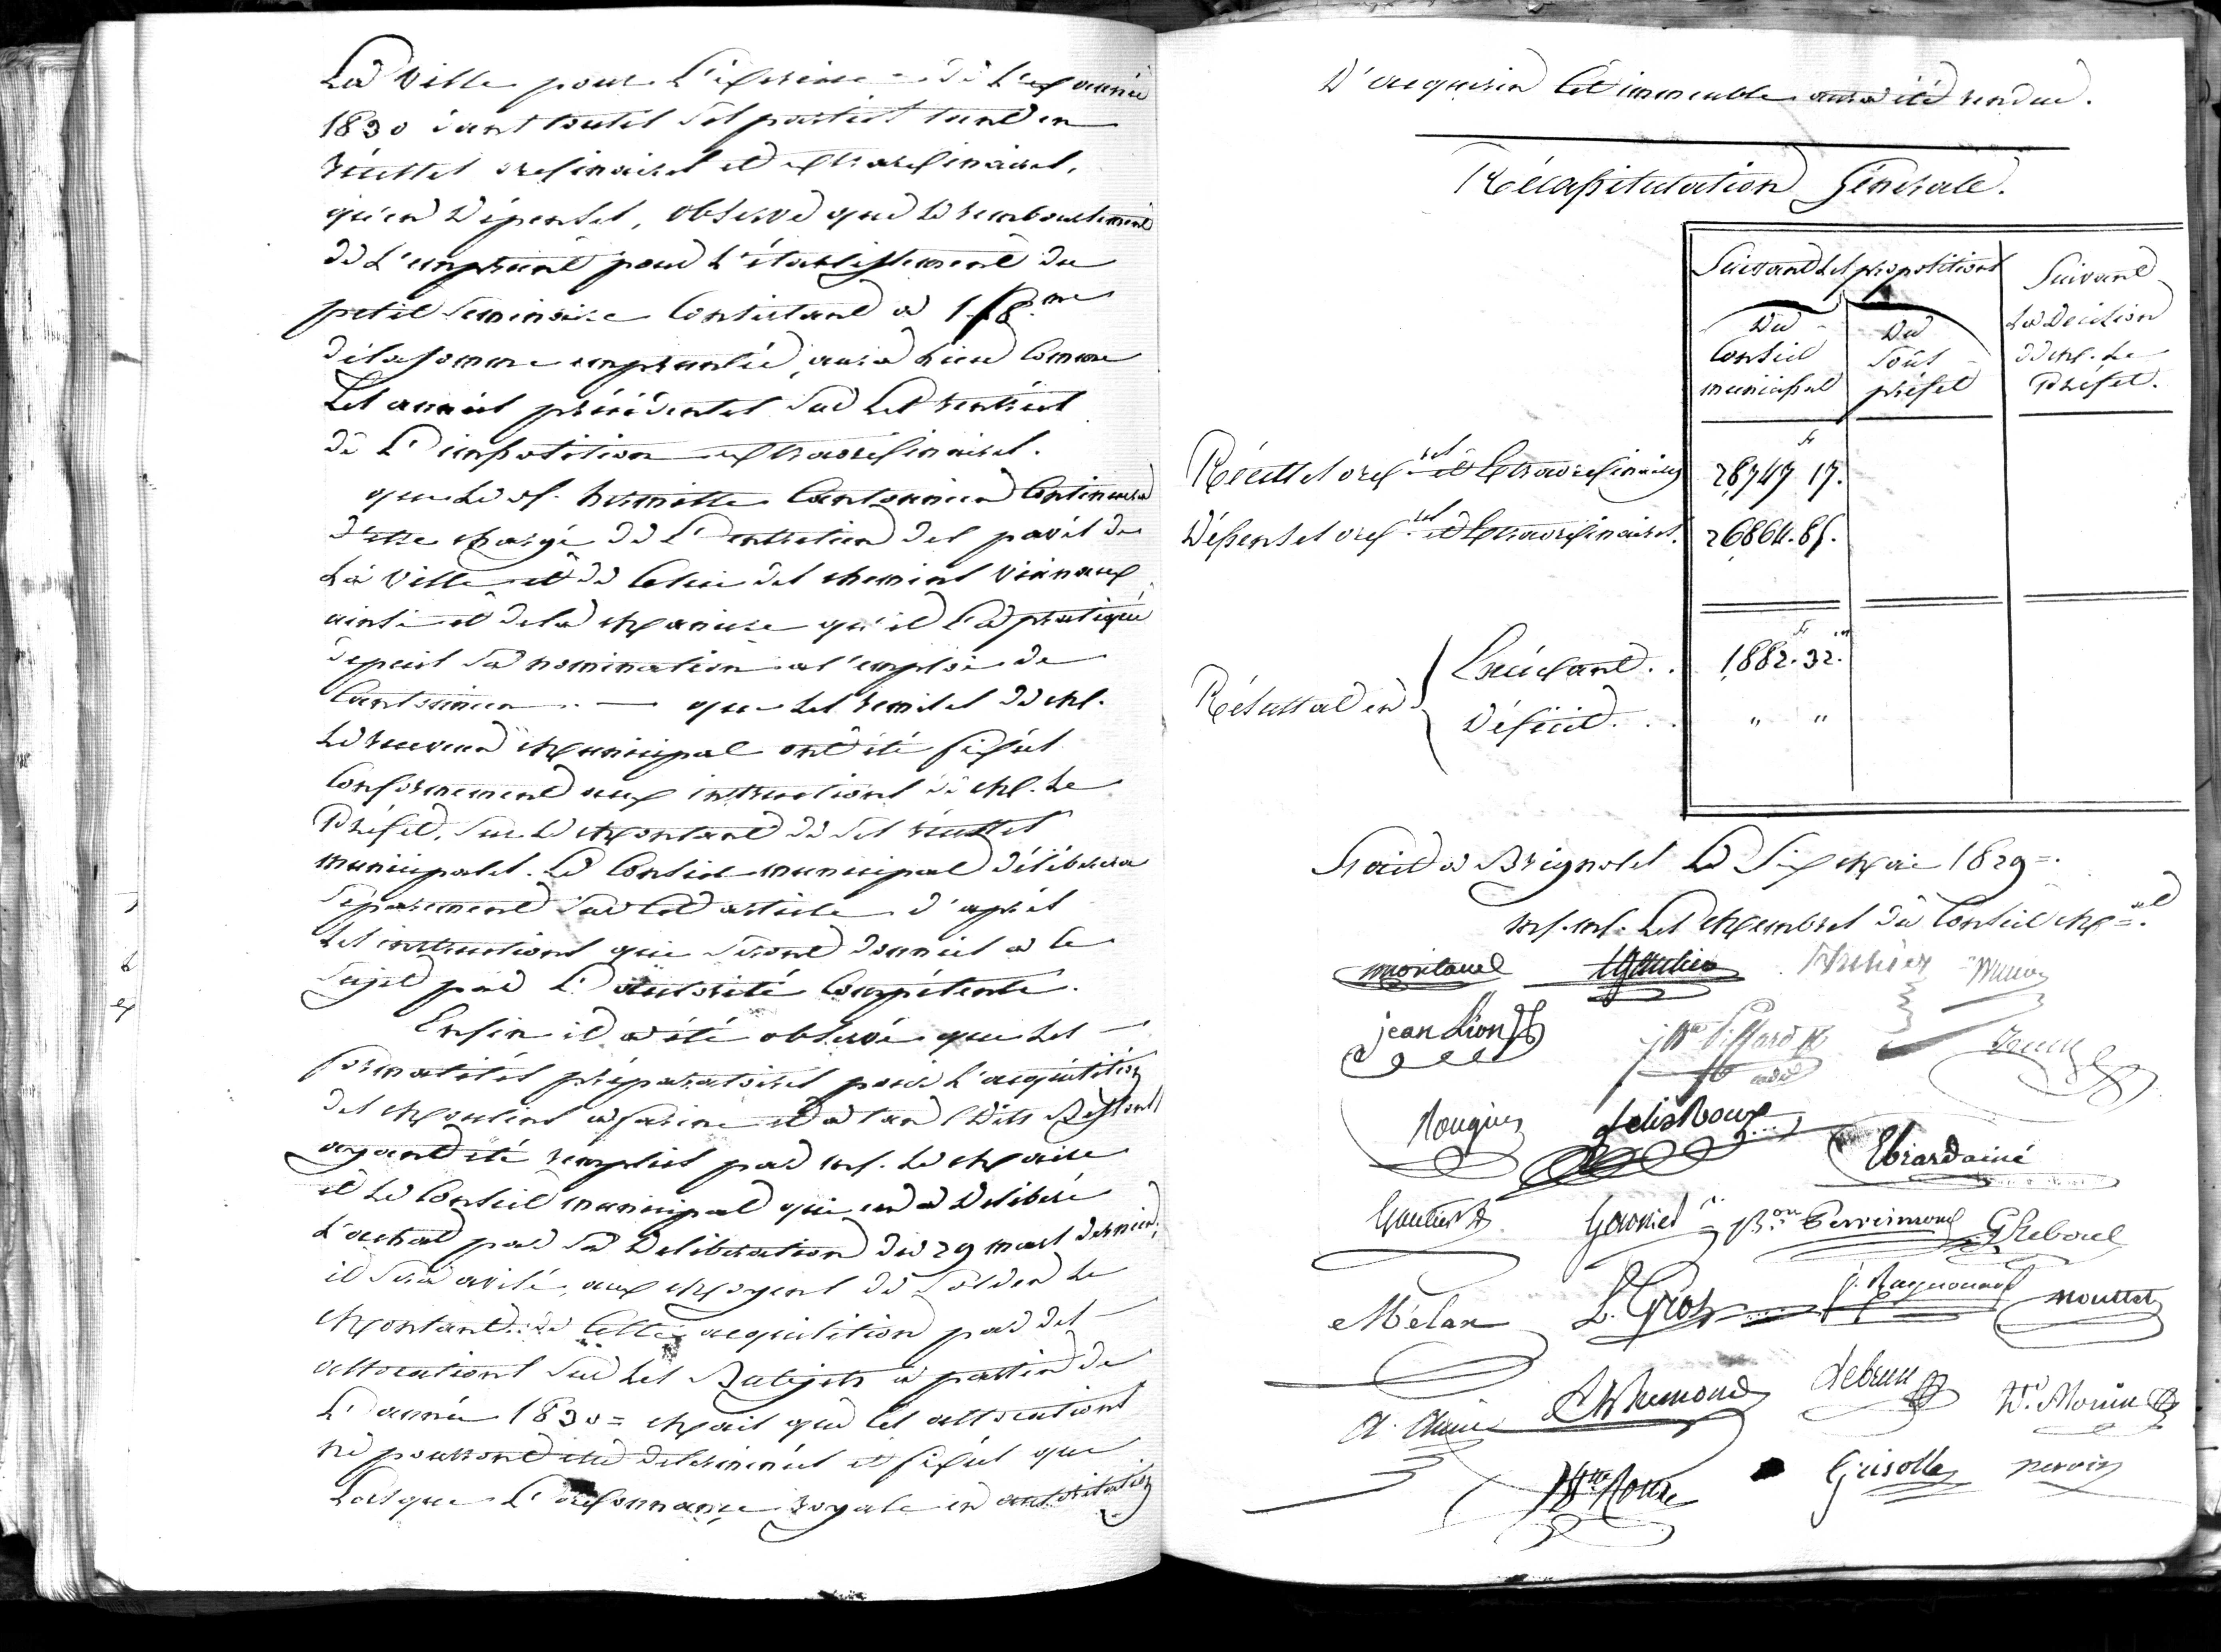 La Ville pour L'Exercice de L'année
1830 dans toutes ses parties tant en
récettes ordinaires et extraordinaires,
qu'en Dépenses, observe que le remboursement
de L'emprunt pour L'établissement du
petit Seminaire Consistant à 1/8.me
de la somme empruntée, aura lieu Comme
Les années précédentes sur Les rentrées
de L'imposition extraordinaire.
que le sr. hermitte Cantonnier Continuera
d'être chargé de L'entretien des pavés de
La Ville et de Celui des chemins vicinaux
ainsi et de la Maniere qu'il L'a pratiqué
depuis sa nomination à l'emploi de
Cantonnier. — que Les remises de M.
Le receveur Municipal ont été fixées
Conformement aux instructions de M. Le
Préfet, sur Le Montant de ses récettes
municipales. Le Conseil municipal délibérera
séparement sur Cet article d'après
Les instructions qui seront données à Ce
sujet par L'autorité Compétente.
Enfin il a été observé que Les —
formalités préparatoires pour L'acquisition
des Moulins à farine et à tan (Dits Bessons)
ayant été remplies par M. Le Maire
et Le Conseil municipal qui en a Délibéré
L'achat par sa Délibération du 29 mars dernier,
il sera avisé, aux Moyens de Solder Le
Montant de Cette acquisition par des —
allocations sur Les Budjets à partir de
L'année 1830 = Mais que Ces allocations
ne pourront être déterminées et fixées que
Lorsque L'ordonnance royale en autorisation
D'acquérir Cet immeuble aura été rendue.
Récapitulation Générale.
Suivant Les propositions
Suivant
La Décision
de M. Le
Préfet.
Du
Conseil
municipal
Du
Sous
préfet
Récettes ord.res et Extraordinaires 28,747 17.
Dépenses ord.res et Extraordinaires. 26,864. 85.
Résultat en
Excédant. . 1,882. 32.
Déficit. . . " "
Fait à Brignoles Le Six Mai 1829 =.
MM. Les Membres du Conseil M.al
montaud
jean Lion
Rougier
felix Roux
Ebrard ainé
Gautier
Garnier
Perrimond
G Reboul
Mélan
L. Gros
J. Raynouard
mouttet
Lebrun
Bte Roux
Grisolle